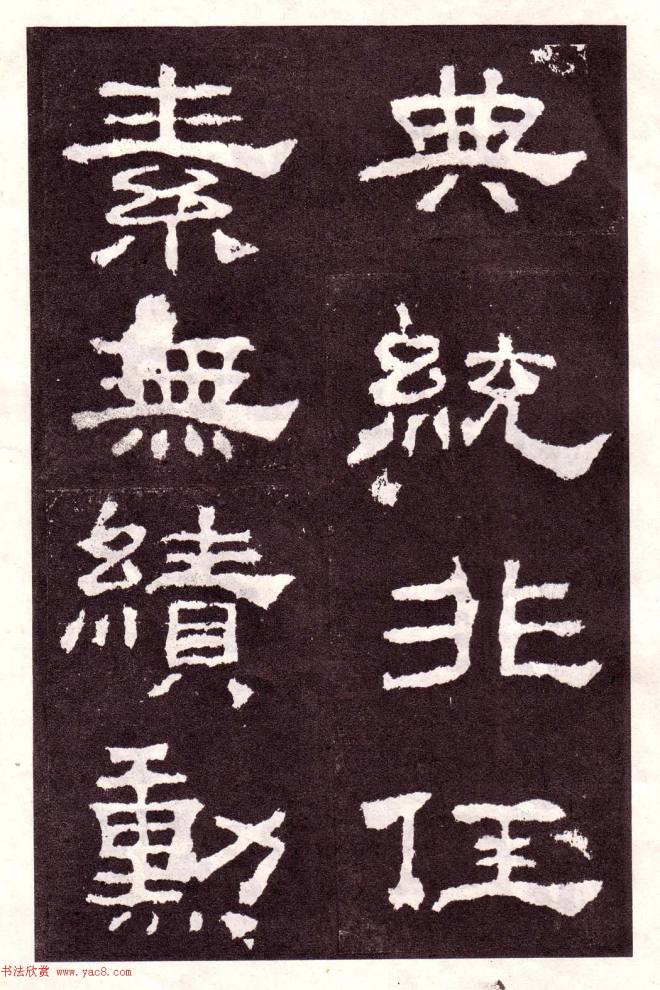 典統非任
素無績勳
书法欣赏 www.yac8.com